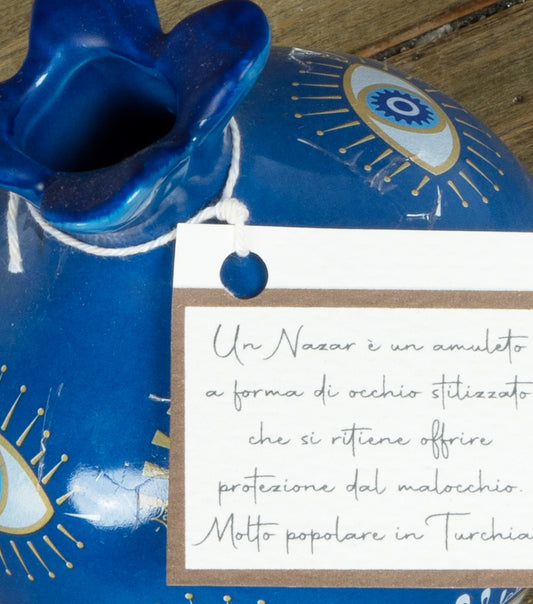 Un Nazar è un amuleto
a forma di occhio stilizzato
che si ritiene offrire
protezione dal malocchio.
Molto popolare in Turchia